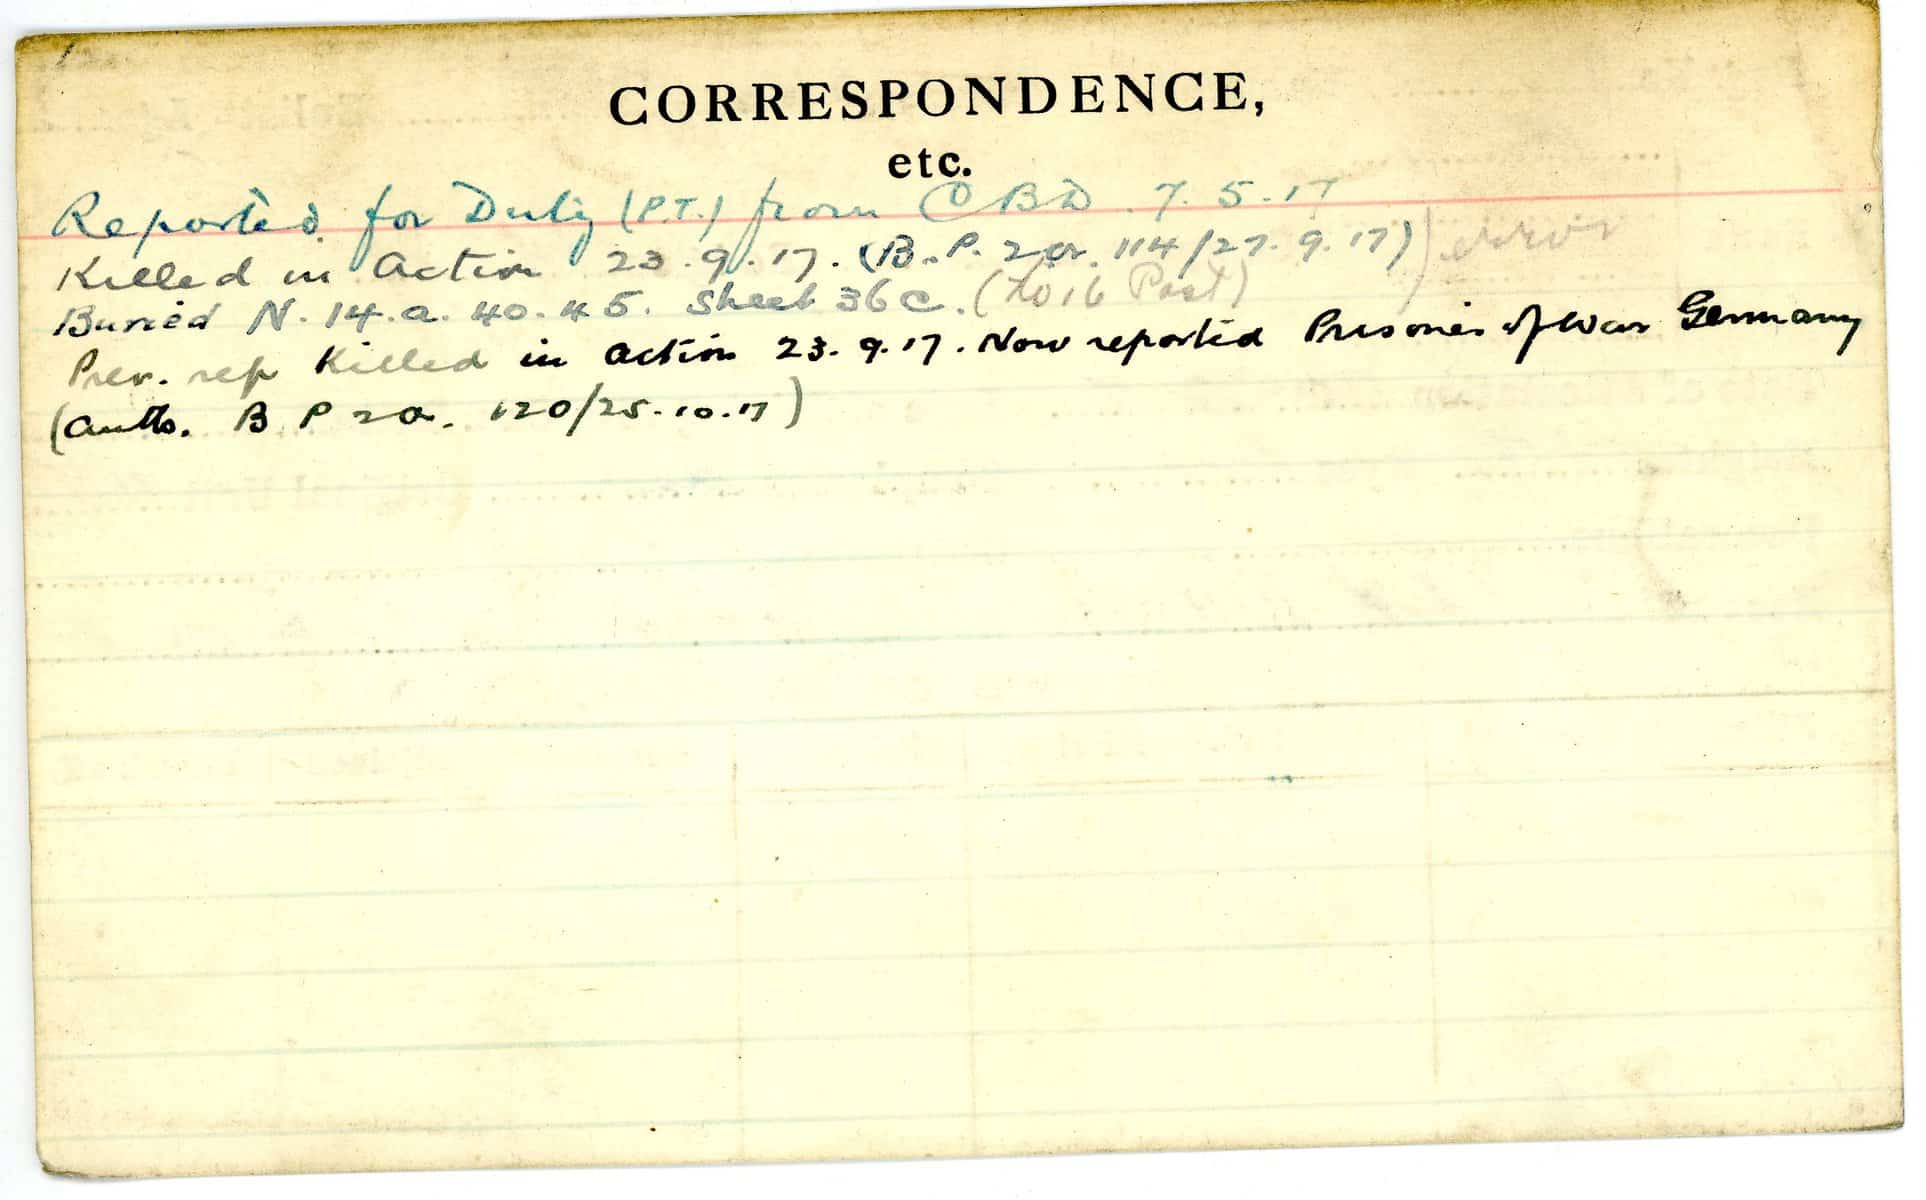 CORRESPONDENCE,
etc.
Reported for Duty (P.T.) from CBD. 7.5.17
Killed in Action 23.9.17. (B.P. 2a. 114/27.9.17) error
Buried N.14.a.40.45. Sheet 36c. (to 16 Post)
Prev. rep Killed in action 23.9.17. Now reported Prisoner of War Germany
(auth. B P 2a. 120/25.10.17)